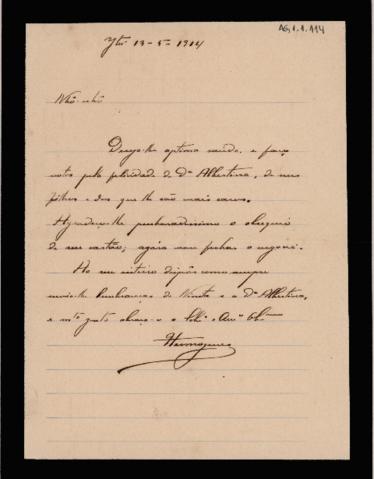 AG.1.1.114
Ytú 13-5-1914
Nhô-nhô
Desejo-lhe optima saúde, e faço
votos pela felicidade de Dª Albertina, de seus
filhos e dos que lhe são mais caros.
Agradeço-lhe penhoradissimo o obsequio
de seu cartão; agora vou fechar o negocio.
Ao seu inteiro dispôr como sempre
envio-lhe lembranças de e a Dª Albertina,
e mto grato abraça-o o Amº
Hermogenes